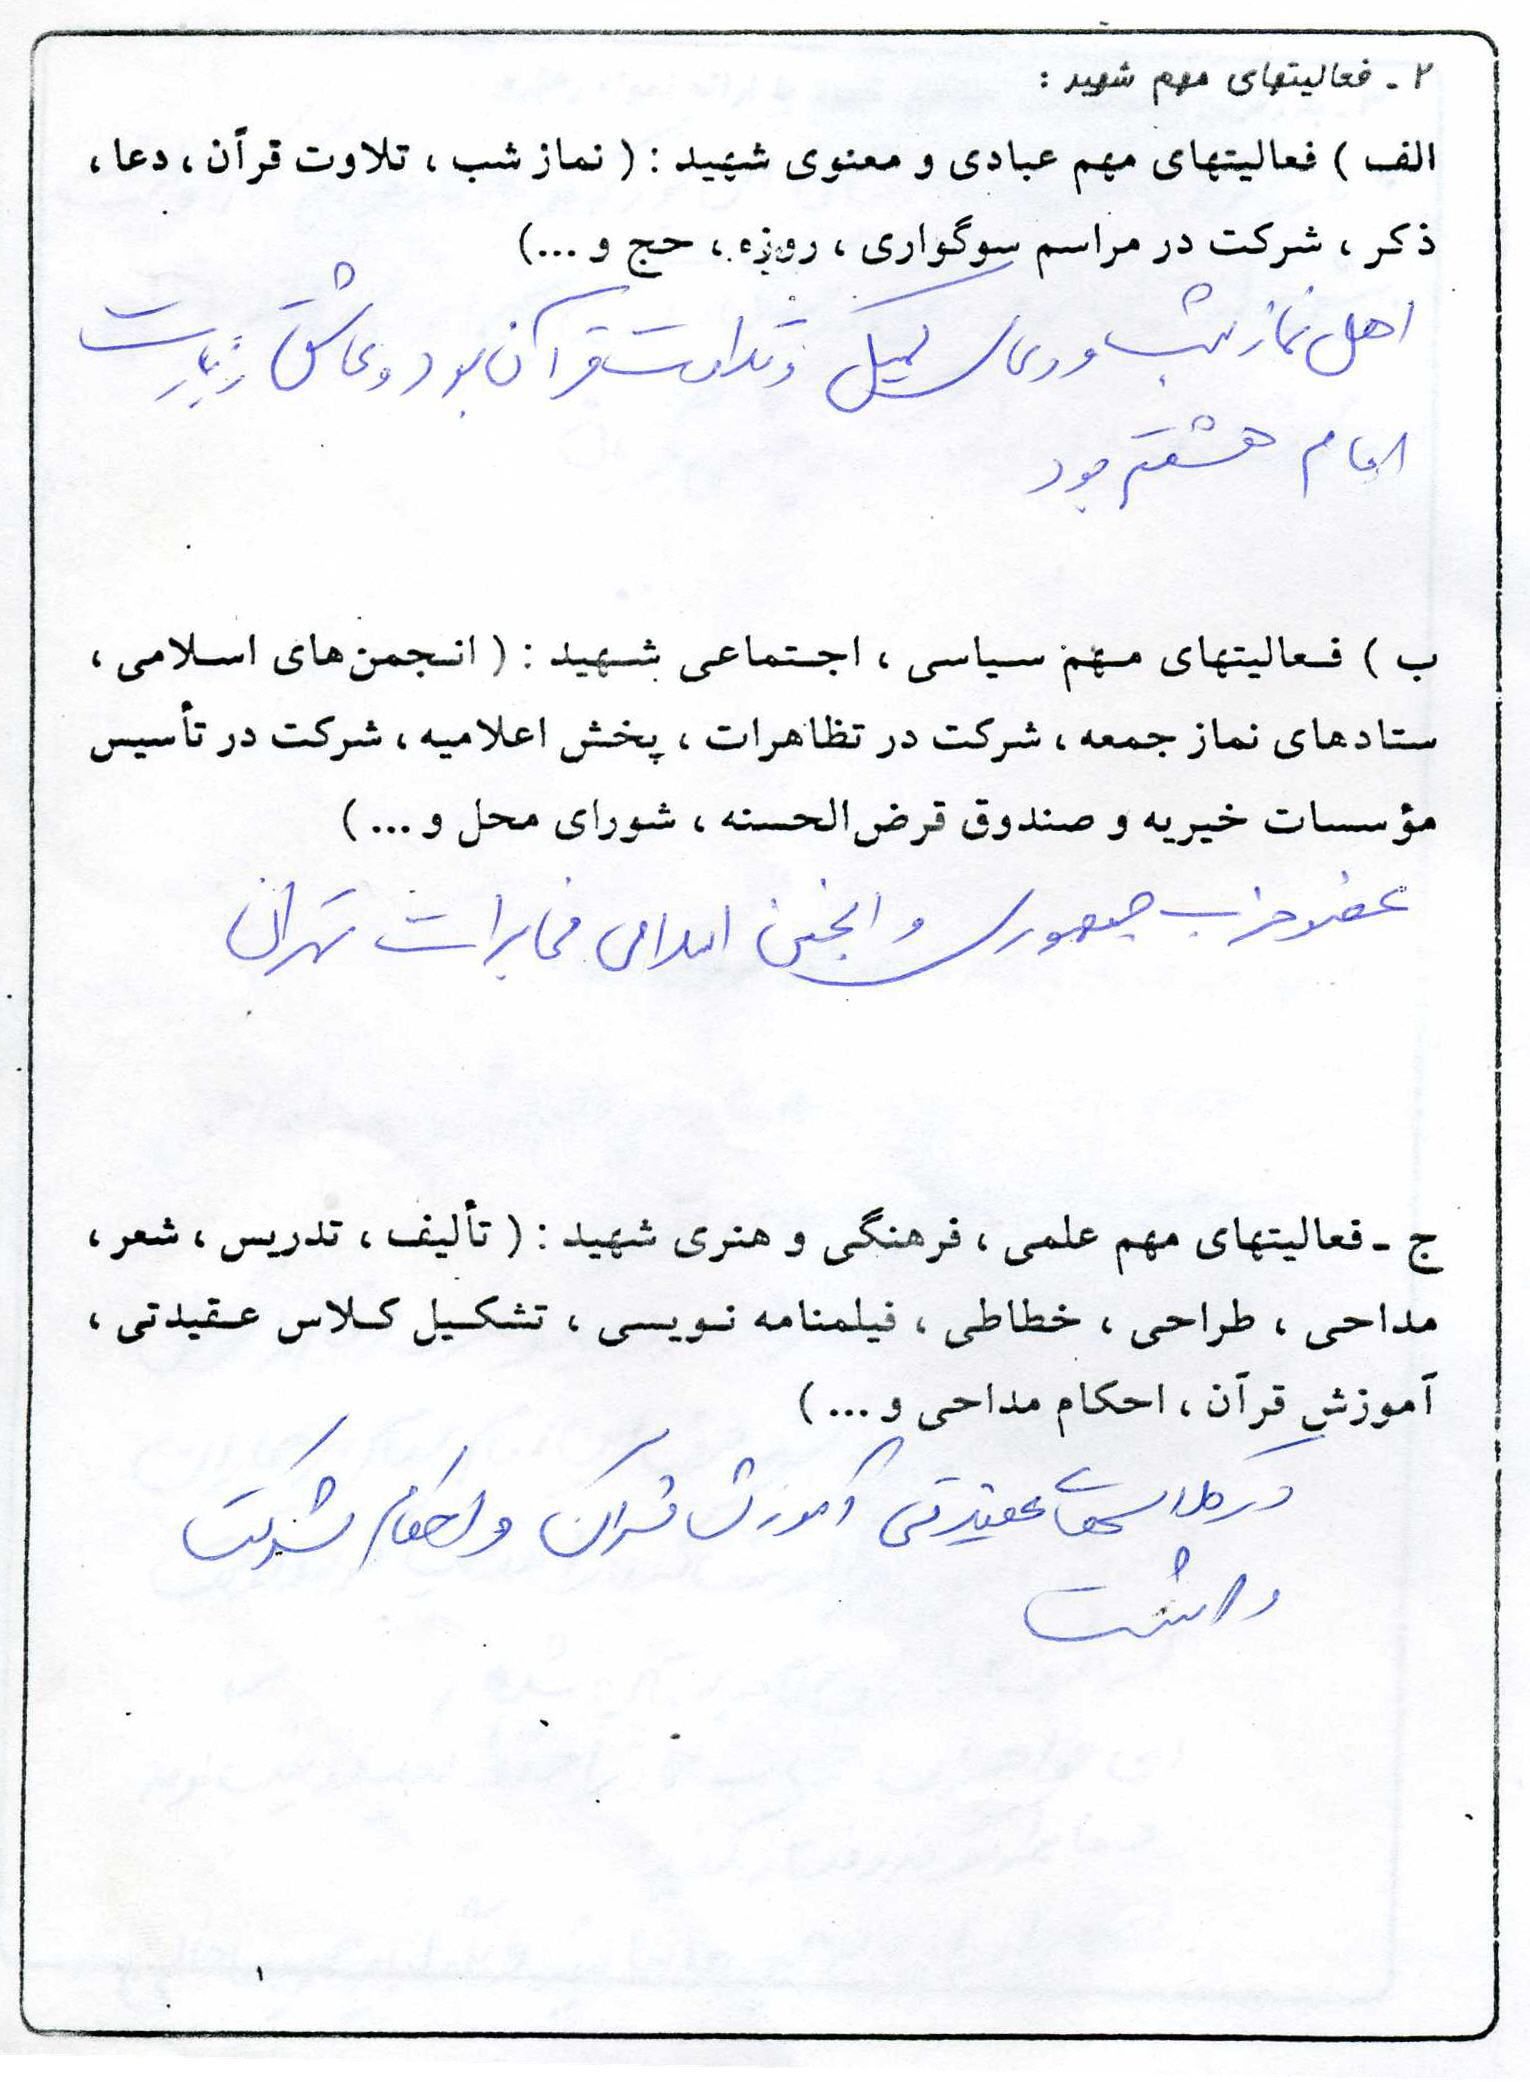 ۲ - فعالیتهای مهم شهید :
الف ) فعالیتهای مهم عبادی و معنوی شهید : ( نماز شب ، تلاوت قرآن ، دعا ،
ذکر ، شرکت در مراسم سوگواری ، روزه ، حج و ...)
اهل نماز شب و دعای کمیل و تلاوت قرآن بود و عاشق زیارت
امام هشتم بود
ب ) فعالیتهای مهم سیاسی ، اجتماعی شهید : ( انجمن‌های اسلامی ،
ستادهای نماز جمعه ، شرکت در تظاهرات ، پخش اعلامیه ، شرکت در تأسیس
مؤسسات خیریه و صندوق قرض‌الحسنه ، شورای محل و ... )
عضو حزب جمهوری و انجمن اسلامی مخابرات تهران
ج - فعالیتهای مهم علمی ، فرهنگی و هنری شهید : ( تألیف ، تدریس ، شعر ،
مداحی ، طراحی ، خطاطی ، فیلمنامه نویسی ، تشکیل کلاس عقیدتی ،
آموزش قرآن ، احکام مداحی و ... )
در کلاسهای عقیدتی آموزش قرآن و احکام شرکت
داشت
۱